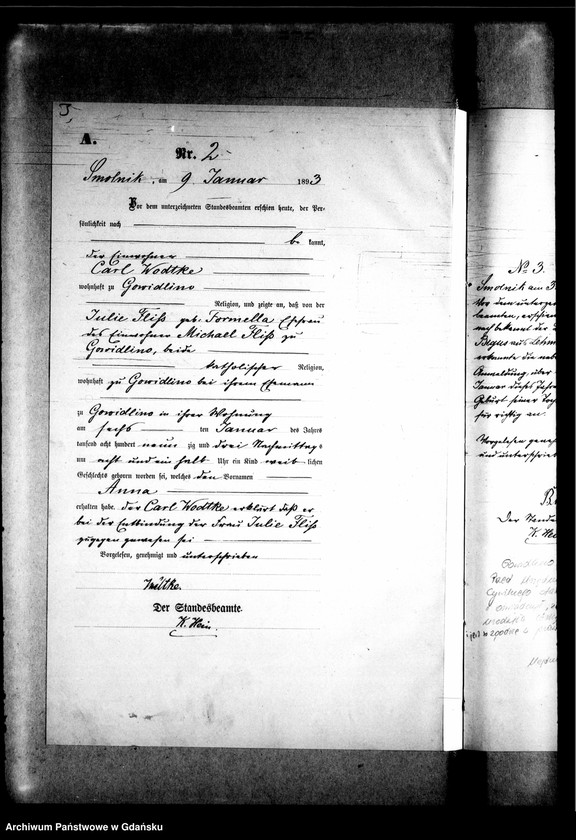 A.
Nr. 2
Smolnik, am 9 Januar 1893
Vor dem unterzeichneten Standesbeamten erschien heute, der Per-
sönlichkeit nach
be kannt,
der Einwohner
Carl Wodtke
wohnhaft zu Gowidlino
Religion, und zeigte an, daß von der
Julie Fliß geb: Formella Ehefrau
des Einwohner Michael Fliß zu
Gowidlino, beide
katholischer Religion,
wohnhaft zu Gowidlino bei ihrem Ehemann
zu Gowidlino in ihrer Wohnung
am sechs ten Januar des Jahres
tausend acht hundert neun zig und drei Nachmittags
um acht und ein halb Uhr ein Kind weib lichen
Geschlechts geboren worden sei, welches den Vornamen
Anna
erhalten habe. der Carl Wodtke erklärt daß er
bei der Entbindung der Frau Julie Fliß
zugegen gewesen sei
Vorgelesen, genehmigt und unterschrieben
Der Standesbeamte.
K. Hein
No 3.
Smolnik am
Vor dem unterze
beamten, erschien
nach bekannt der
aus
erkannte die
Anmeldung, über
Januar dieses Jahre
Geburt seiner
für richtig an.
Vorgelesen gene
und unterschrie
Der Stande
K. Hei
Archiwum Państwowe w Gdańsku